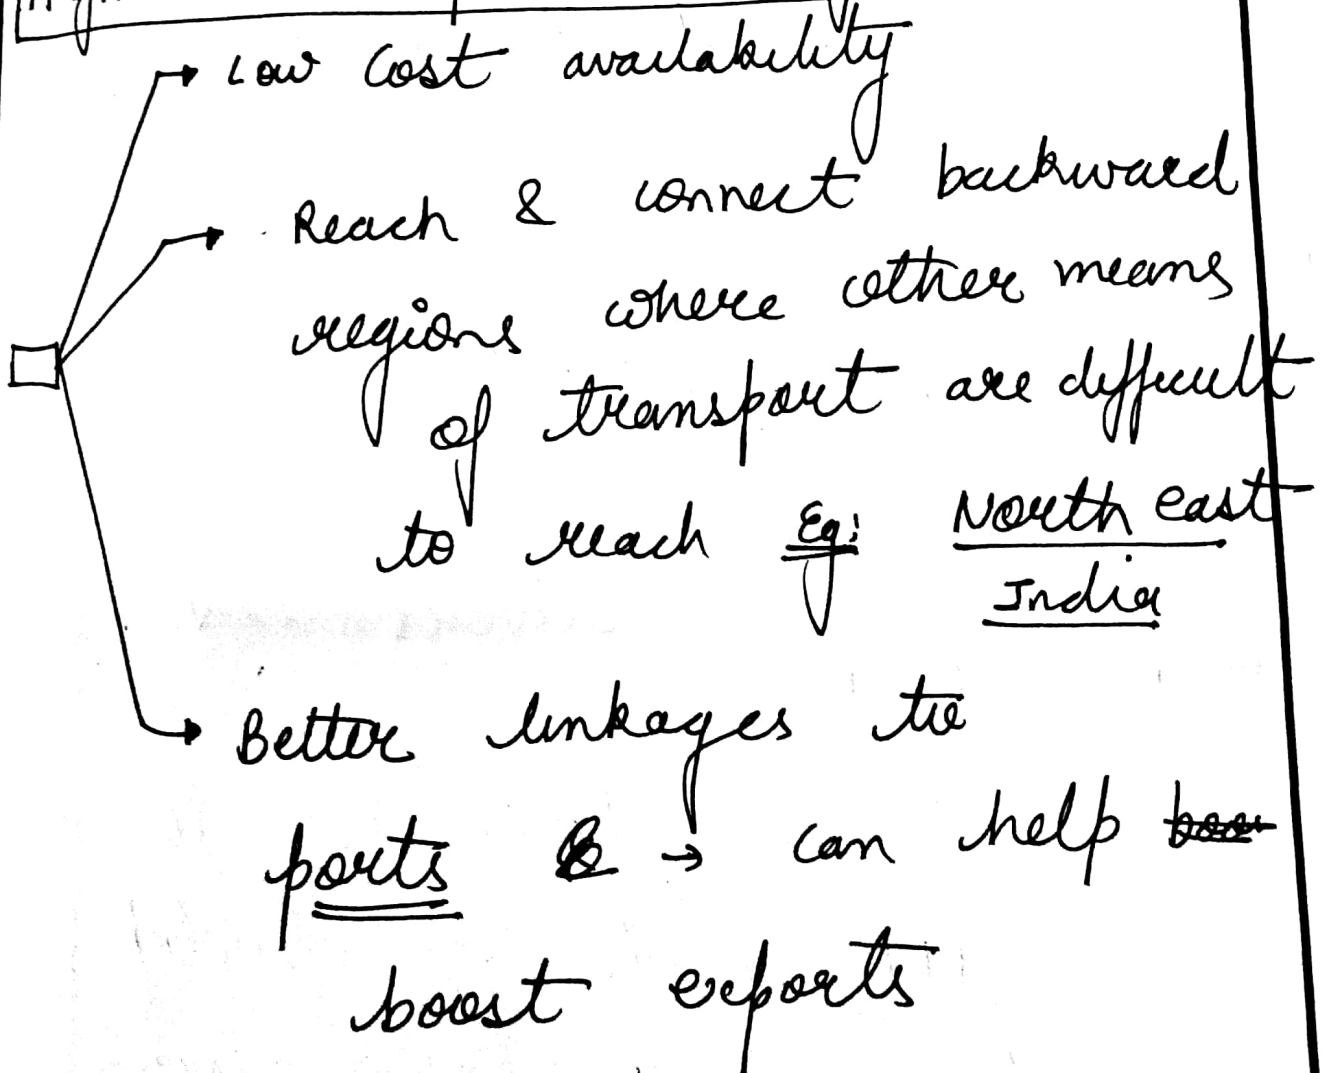 → Low cost availability
→ Reach & connect backward
regions where other means
of transport are difficult
to reach Eg: North east
India
→ Better linkages to
ports & → can help
boost exports